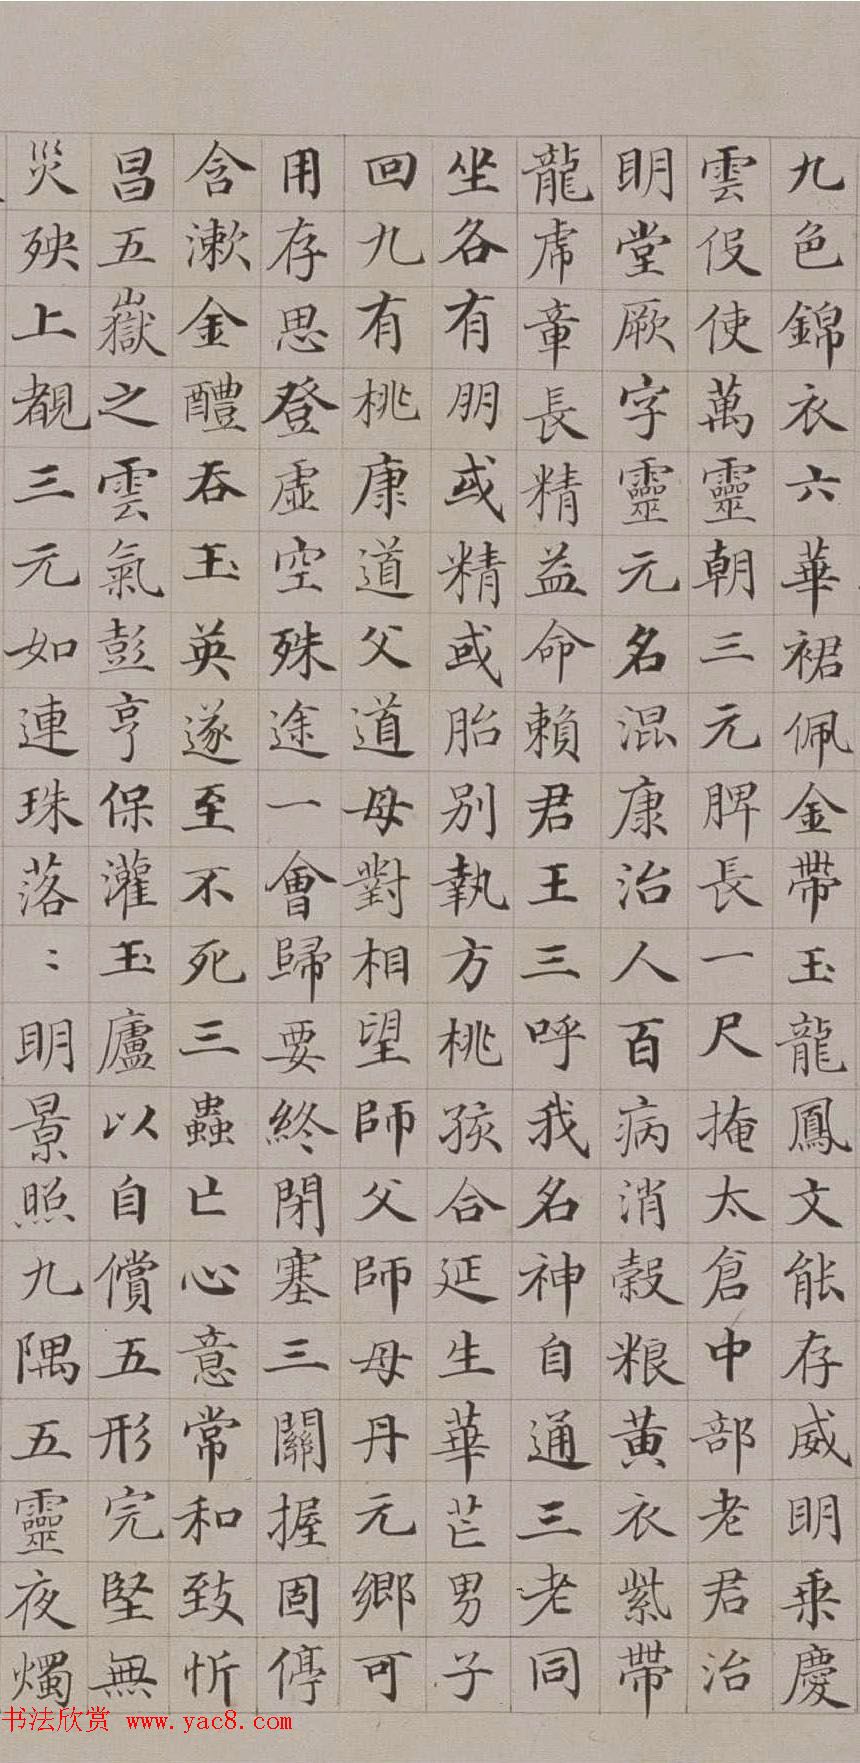 九色錦衣六華裙佩金帶玉龍鳳文能存威明乗慶
雲伇使萬靈朝三元脾長一尺掩太倉中部老君治
明堂厥字靈元名混康治人百病消榖粮黄衣紫帶
龍虎章長精益命賴君王三呼我名神自通三老同
坐各有朋或精或胎别執方桃孩合延生華芒男子
回九有桃康道父道母對相望師父師母丹元鄉可
用存思登虚空殊途一會歸要終閉塞三關握固停
含漱金醴吞玉英遂至不死三蟲亡心意常和致忻
昌五嶽之雲氣彭亨保灌玉廬以自償五形完堅無
災殃上覩三元如連珠落〻明景照九隅五靈夜燭
书法欣赏 www.yac8.com